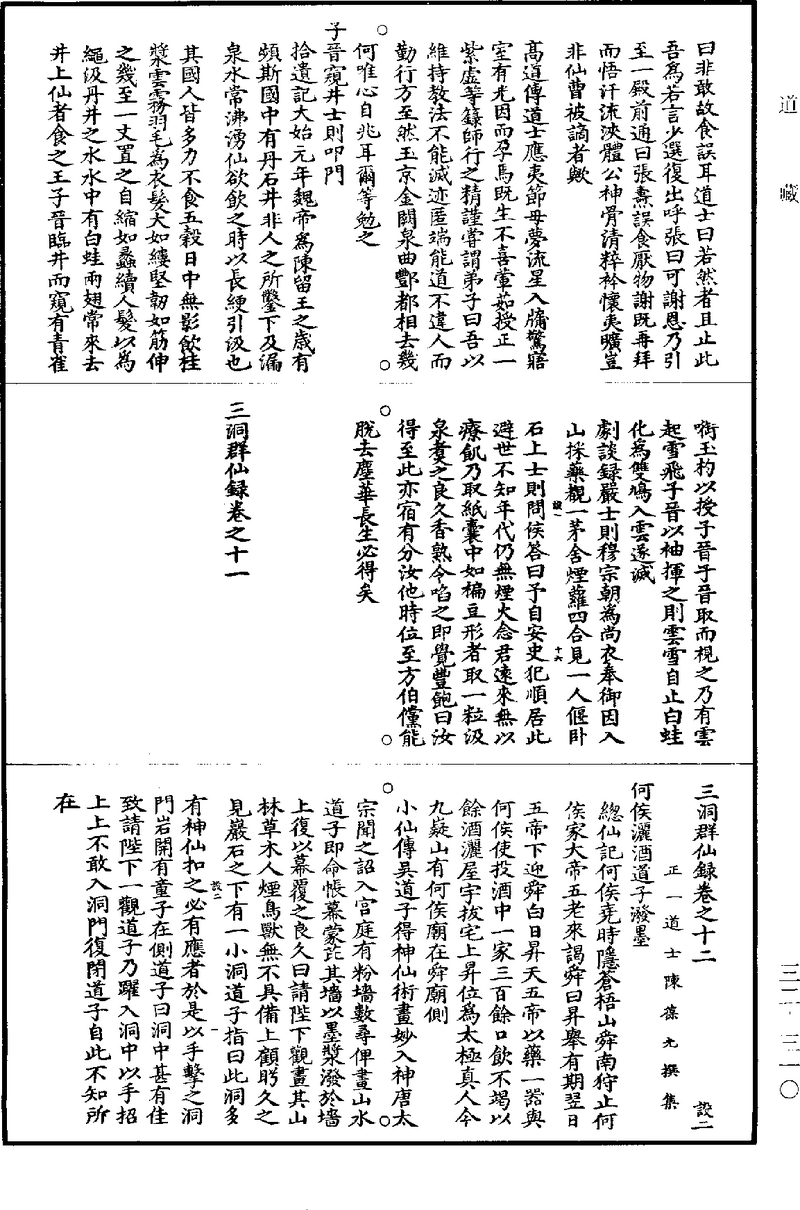 道藏
曰非敢故食誤耳道士曰若然者且止此
吾為若言少選復出呼張曰可謝恩乃引
至一殿前通曰張燾誤食厭物謝既再拜
而悟汗流浹體公神骨清粹衿懷夷曠豈
非仙曹被謫者歟
高道傳道士應夷節母夢流星入牖驚寤
室有光因而孕焉既生不喜葷茹授正一
紫虛等籙師行之精謹嘗謂弟子曰吾以
維持教法不能滅迹匿端能道不違人而
勤行方至然玉京金闕泉曲酆都相去幾
何唯心自兆耳爾等勉之
子晉窺井士則叩門
拾遺記大始元年魏帝為陳留王之歲有
頻斯國中有丹石井非人之所鑿下及漏
泉水常沸湧仙欲飲之時以長綆引汲也
其國人皆多力不食五穀日中無影飲桂
漿雲霧羽毛為衣髮大如縷堅韌如筋伸
之幾至一丈置之自縮如蠡續人髮以為
繩汲丹井之水水中有白蛙兩翅常來去
井上仙者食之王子晉臨井而窺有青雀
銜玉杓以授子晉子晉取而視之乃有雲
起雪飛子晉以袖揮之則雲雪自止白蛙
化為雙鳩入雲遂滅
劇談録嚴士則穆宗朝為尚衣奉御因入
山採藥觀一茅舍煙蘿四合見一人偃卧
石上士則問侯答曰予自安史犯順居此
避世不知年代仍無煙火念君遠來無以
療飢乃取紙囊中如稨豆形者取一粒汲
泉煑之良久香熟令啗之即覺豐飽曰汝
得至此亦宿有分汝他時位至方伯儻能
脫去塵華長生必得矣
三洞群仙録卷之十一
設一
十六
三洞群仙録卷之十二
設二
正一道士陳葆光撰集
何侯灑酒道子潑墨
總仙記何侯堯時隱蒼梧山舜南狩止何
侯家大帝五老來謁舜曰昇舉有期翌日
五帝下迎舜白日昇天五帝以藥一器與
何侯使投酒中一家三百餘口飲不竭以
餘酒灑屋宇拔宅上昇位為太極真人今
九疑山有何侯廟在舜廟側
小仙傳吳道子得神仙術畫妙入神唐太
宗聞之詔入宮庭有粉墻數尋俾畫山水
道子即命帳幕蒙訖其墻以墨漿潑於墻
上復以幕覆之良久曰請陛下觀畫其山
林草木人煙鳥獸無不具備上顧眄久之
見巖石之下有一小洞道子指曰此洞多
設二
一
有神仙扣之必有應者於是以手擊之洞
門岩開有童子在側道子曰洞中甚有佳
致請陛下一觀道子乃躍入洞中以手招
上上不敢入洞門復閉道子自此不知所
在
三二·三一〇